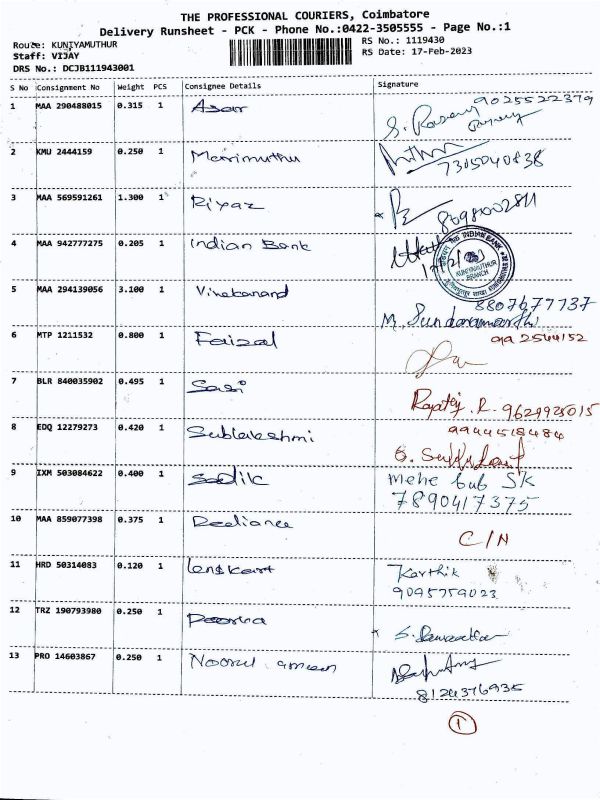 THE PROFESSIONAL COURIERS, Coimbatore
Delivery Runsheet - PCK - Phone No.:0422-3505555 - Page No.:1
Route: KUNIYAMUTHUR RS No.: 1119430
Staff: VIJAY RS Date: 17-Feb-2023
DRS No.: DCJB111943001
S No Consignment No Weight PCS Consignee Details Signature
1 MAA 290488015 0.315 1 Asar 9025522379
2 KMU 2444159 0.250 1 Marimuthu 7305040838
3 MAA 569591261 1.300 1 Riyaz
4 MAA 942777275 0.205 1 Indian Bank
INDIAN BANK
KUNIYAMUTHUR
BRANCH
5 MAA 294139056 3.100 1 Vivekanand 8807677737
M. Sundaramoorthi
6 MTP 1211532 0.800 1 Faizal
7 BLR 840035902 0.495 1 Sasi 9629925015
8 EDQ 12279273 0.420 1 Sublakshmi 9944518484
9 IXM 503084622 0.400 1 Sadik Mehe bub SK
7890417375
10 MAA 859077398 0.375 1 Reeliance C/N
11 HRD 50314083 0.120 1 lenskart Karthik
9095759023
12 TRZ 190793980 0.250 1 Poorna
13 PRO 14603867 0.250 1 Noorul ameen
8124376935
1